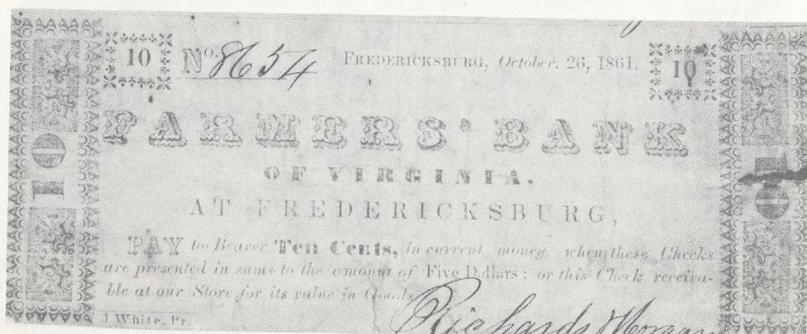 10 No. 8654 FREDERICKSBURG, October, 26, 1861. 10
FARMERS' BANK
10
OF VIRGINIA,
AT FREDERICKSBURG,
PAY to Bearer Ten Cents, in current money, when these Checks
are presented in sums to the amount of Five Dollars: or this Check receiva-
ble at our Store for its value in Goods
J. White, Pr.
Richards &